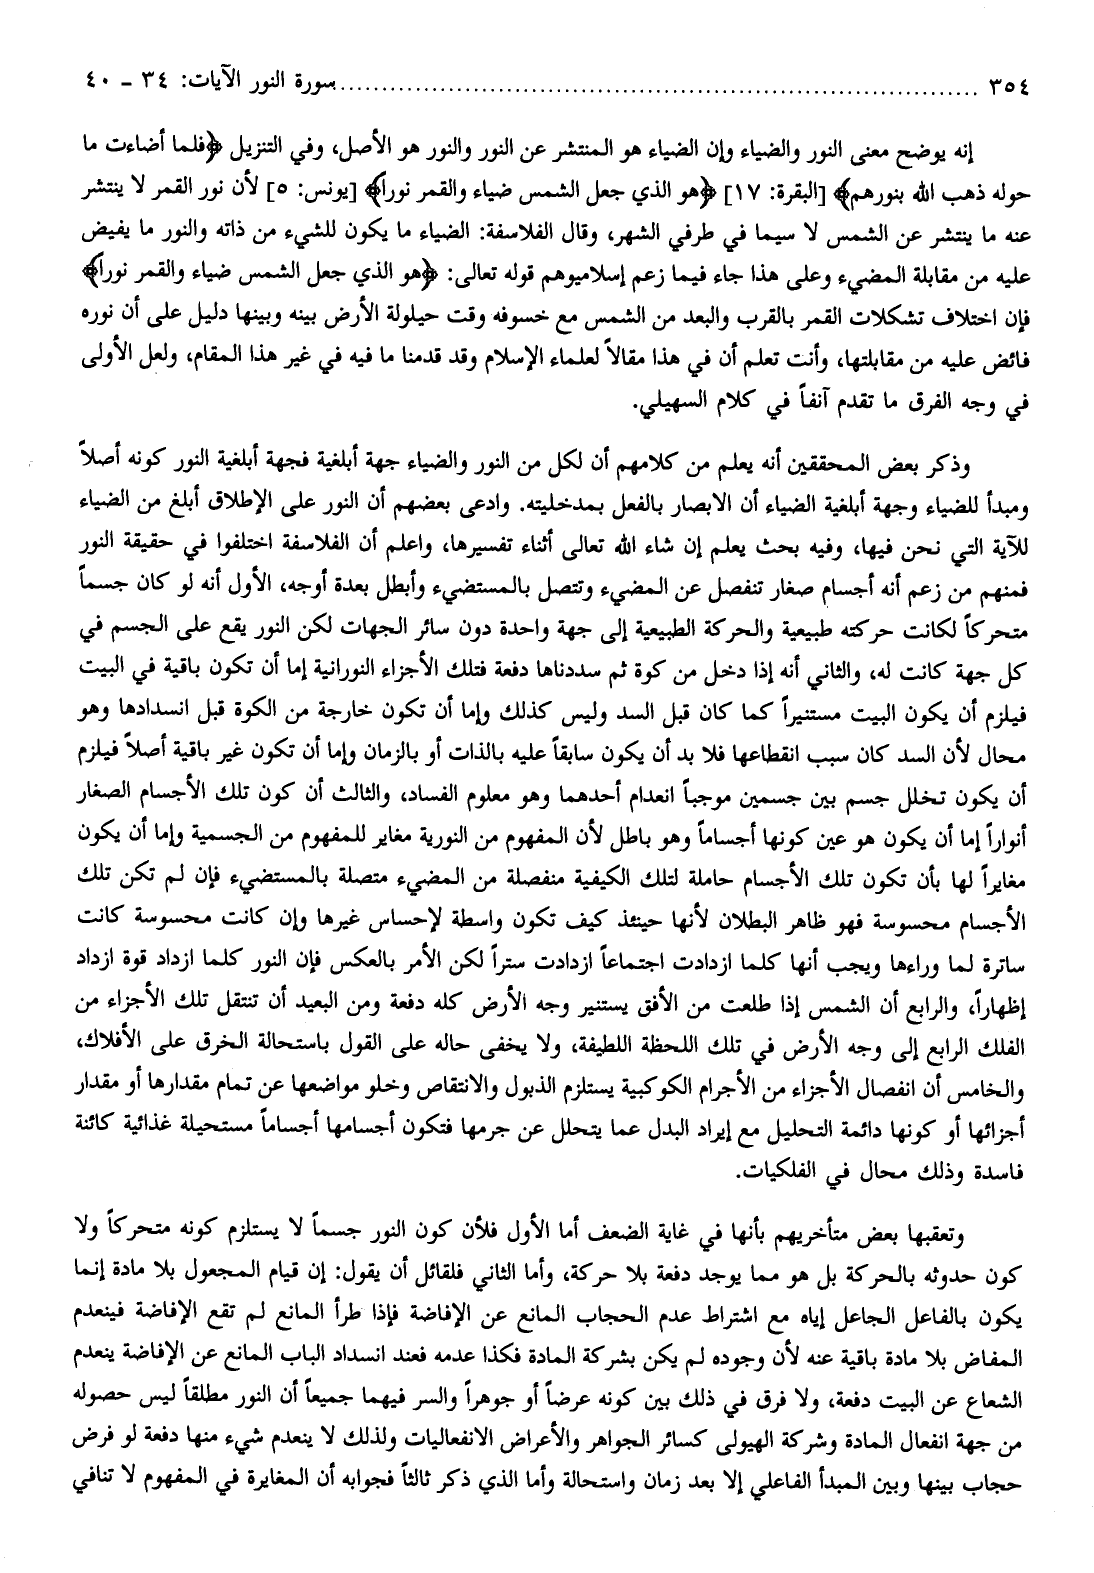 ٣٥٤ ........................................................................................ سورة النور الآيات: ٣٤ - ٤٠
إنه يوضح معنى النور والضياء وإن الضياء هو المنتشر عن النور والنور هو الأصل، وفي التنزيل ﴿فلما أضاءت ما
حوله ذهب الله بنورهم﴾ [البقرة: ١٧] ﴿هو الذي جعل الشمس ضياء والقمر نوراً﴾ [يونس: ٥] لأن نور القمر لا ينتشر
عنه ما ينتشر عن الشمس لا سيما في طرفي الشهر، وقال الفلاسفة: الضياء ما يكون للشيء من ذاته والنور ما يفيض
عليه من مقابلة المضيء وعلى هذا جاء فيما زعم إسلاميوهم قوله تعالى: ﴿هو الذي جعل الشمس ضياء والقمر نوراً﴾
فإن اختلاف تشكلات القمر بالقرب والبعد من الشمس مع خسوفه وقت حيلولة الأرض بينه وبينها دليل على أن نوره
فائض عليه من مقابلتها، وأنت تعلم أن في هذا مقالاً لعلماء الإسلام وقد قدمنا ما فيه في غير هذا المقام، ولعل الأولى
في وجه الفرق ما تقدم آنفاً في كلام السهيلي.
وذكر بعض المحققين أنه يعلم من كلامهم أن لكل من النور والضياء جهة أبلغية فجهة أبلغية النور كونه أصلاً
ومبدأ للضياء وجهة أبلغية الضياء أن الابصار بالفعل بمدخليته. وادعى بعضهم أن النور على الإطلاق أبلغ من الضياء
للآية التي نحن فيها، وفيه بحث يعلم إن شاء الله تعالى أثناء تفسيرها، واعلم أن الفلاسفة اختلفوا في حقيقة النور
فمنهم من زعم أنه أجسام صغار تنفصل عن المضيء وتتصل بالمستضيء وأبطل بعدة أوجه، الأول أنه لو كان جسماً
متحركاً لكانت حركته طبيعية والحركة الطبيعية إلى جهة واحدة دون سائر الجهات لكن النور يقع على الجسم في
كل جهة كانت له، والثاني أنه إذا دخل من كوة ثم سددناها دفعة فتلك الأجزاء النورانية إما أن تكون باقية في البيت
فيلزم أن يكون البيت مستنيراً كما كان قبل السد وليس كذلك وإما أن تكون خارجة من الكوة قبل انسدادها وهو
محال لأن السد كان سبب انقطاعها فلا بد أن يكون سابقاً عليه بالذات أو بالزمان وإما أن تكون غير باقية أصلاً فيلزم
أن يكون تخلل جسم بين جسمين موجباً انعدام أحدهما وهو معلوم الفساد، والثالث أن كون تلك الأجسام الصغار
أنواراً إما أن يكون هو عين كونها أجساماً وهو باطل لأن المفهوم من النورية مغاير للمفهوم من الجسمية وإما أن يكون
مغايراً لها بأن تكون تلك الأجسام حاملة لتلك الكيفية منفصلة من المضيء متصلة بالمستضيء فإن لم تكن تلك
الأجسام محسوسة فهو ظاهر البطلان لأنها حينئذ كيف تكون واسطة لإحساس غيرها وإن كانت محسوسة كانت
ساترة لما وراءها ويجب أنها كلما ازدادت اجتماعاً ازدادت ستراً لكن الأمر بالعكس فإن النور كلما ازداد قوة ازداد
إظهاراً، والرابع أن الشمس إذا طلعت من الأفق يستنير وجه الأرض كله دفعة ومن البعيد أن تنتقل تلك الأجزاء من
الفلك الرابع إلى وجه الأرض في تلك اللحظة اللطيفة، ولا يخفى حاله على القول باستحالة الخرق على الأفلاك،
والخامس أن انفصال الأجزاء من الأجرام الكوكبية يستلزم الذبول والانتقاص وخلو مواضعها عن تمام مقدارها أو مقدار
أجزائها أو كونها دائمة التحليل مع إيراد البدل عما يتحلل عن جرمها فتكون أجسامها أجساماً مستحيلة غذائية كائنة
فاسدة وذلك محال في الفلكيات.
وتعقبها بعض متأخريهم بأنها في غاية الضعف أما الأول فلأن كون النور جسماً لا يستلزم كونه متحركاً ولا
كون حدوثه بالحركة بل هو مما يوجد دفعة بلا حركة، وأما الثاني فلقائل أن يقول: إن قيام المجعول بلا مادة إنما
يكون بالفاعل الجاعل إياه مع اشتراط عدم الحجاب المانع عن الإفاضة فإذا طرأ المانع لم تقع الإفاضة فينعدم
المفاض بلا مادة باقية عنه لأن وجوده لم يكن بشركة المادة فكذا عدمه فعند انسداد الباب المانع عن الإفاضة ينعدم
الشعاع عن البيت دفعة، ولا فرق في ذلك بين كونه عرضاً أو جوهراً والسر فيهما جميعاً أن النور مطلقاً ليس حصوله
من جهة انفعال المادة وشركة الهيولى كسائر الجواهر والأعراض الانفعاليات ولذلك لا ينعدم شيء منها دفعة لو فرض
حجاب بينها وبين المبدأ الفاعلي إلا بعد زمان واستحالة وأما الذي ذكر ثالثاً فجوابه أن المغايرة في المفهوم لا تنافي